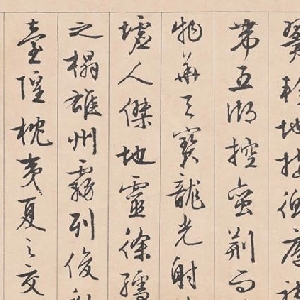 翼軫地接衡廬
帶五湖控蠻荊而
物華天寶龍光射
墟人傑地靈徐孺
之榻雄州霧列俊
臺隍枕夷夏之交